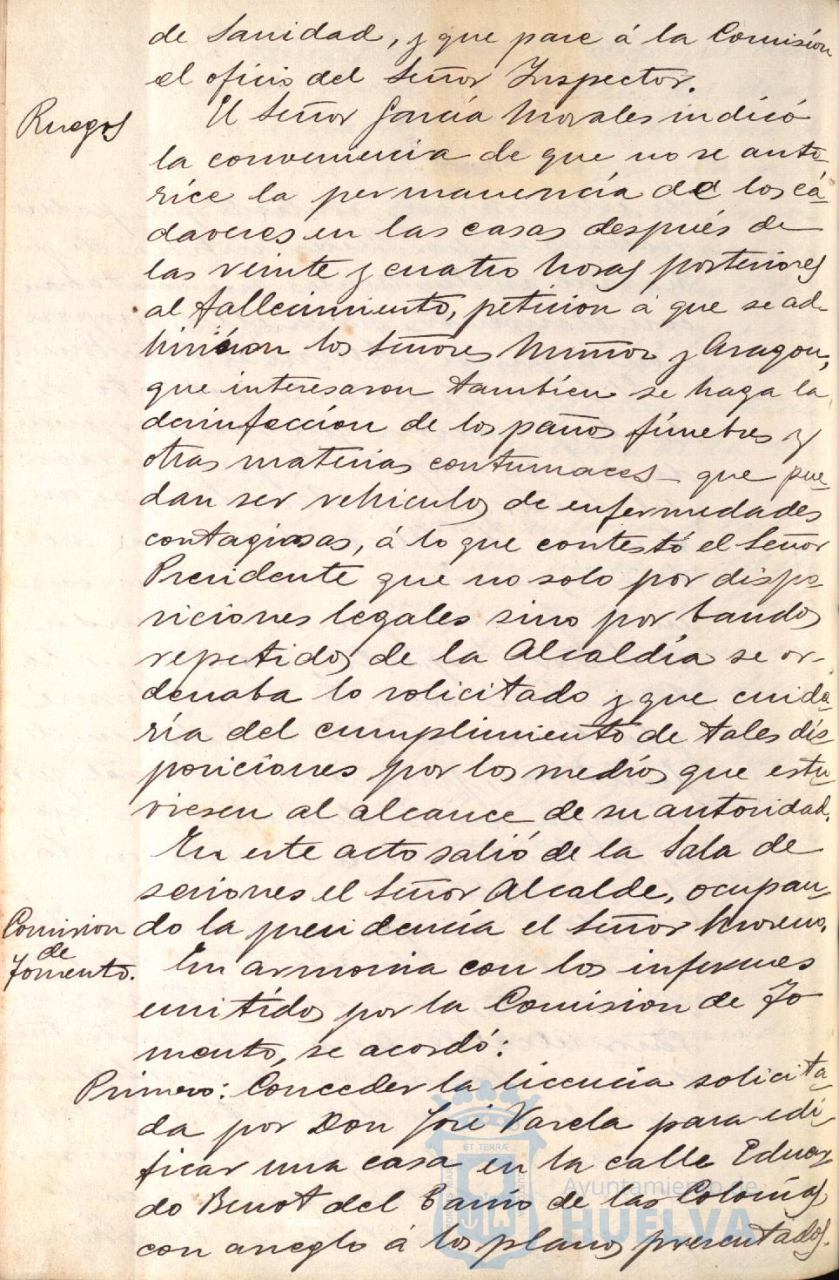 de Sanidad, y que pase á la Comisión
el oficio del Señor Inspector.
Ruegos
El Señor García Morales indicó
la conveniencia de que no se auto-
rice la permanencia de los ca-
daveres en las casas después de
las veinte y cuatro horas posteriores
al fallecimiento, peticion á que se ad-
hirieron los Señores Muñoz y Aragon,
que interesaron tambien se haga la
desinfeccion de los paños fúnebres y
otras materias contumaces que pue-
dan ser vehiculos de enfermedades
contagiosas, á lo que contestó el Señor
Presidente que no solo por dispo-
siciones legales sino por bandos
repetidos de la Alcaldía se or-
denaba lo solicitado y que cuida-
ría del cumplimiento de tales dis-
posiciones por los medios que estu-
viesen al alcance de su autoridad.
En este acto salió de la Sala de
sesiones el Señor Alcalde, ocupan-
do la presidencia el Señor Moreno.
Comision
de
Fomento.
En armonia con los informes
emitidos por la Comision de Fo
mento, se acordó:
Primero: Conceder la licencia solicita-
da por Don José Varela para edi-
ficar una casa en la calle Eduar-
do Benot del Barrio de las Colonias,
con arreglo á los planos presentados.
ET TERRÆ
Ayuntamiento de
HUELVA